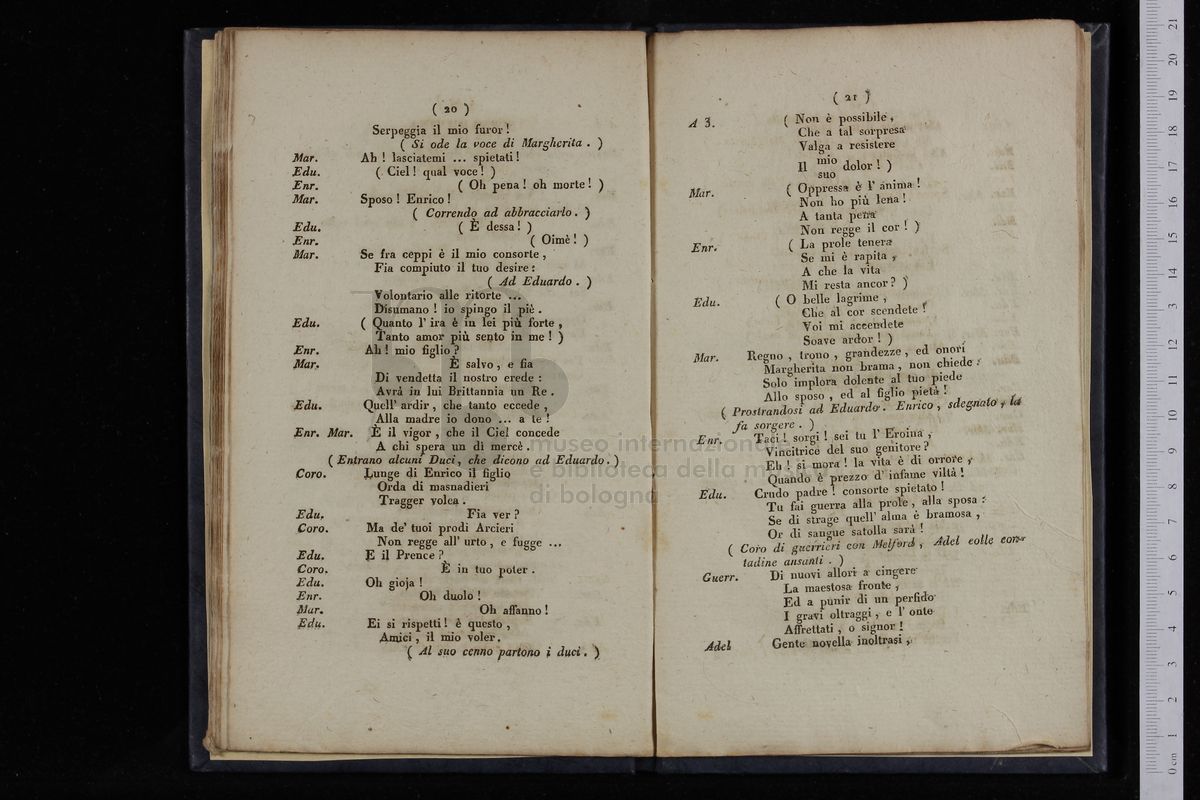 ( 20 )
Serpeggia il mio furor !
( Si ode la voce di Margherita . )
Mar. Ah ! lasciatemi ... spietati !
Edu. ( Ciel ! qual voce ! )
Enr. ( Oh pena ! oh morte ! )
Mar. Sposo ! Enrico !
( Correndo ad abbracciarlo . )
Edu. ( È dessa ! )
Enr. ( Oimè ! )
Mar. Se fra ceppi è il mio consorte ,
Fia compiuto il tuo desire :
( Ad Eduardo . )
Volontario alle ritorte ...
Disumano ! io spingo il piè .
Edu. ( Quanto l' ira è in lei più forte ,
Tanto amor più sento in me ! )
Enr. Ah ! mio figlio ?
Mar. È salvo , e fia
Di vendetta il nostro erede :
Avrà in lui Brittannia un Re .
Edu. Quell' ardir , che tanto eccede ,
Alla madre io dono ... a te !
Enr. Mar. È il vigor , che il Ciel concede
A chi spera un dì mercè .
( Entrano alcuni Duci , che dicono ad Eduardo . )
Coro. Lunge di Enrico il figlio
Orda di masnadieri
Tragger volea .
Edu. Fia ver ?
Coro. Ma de' tuoi prodi Arcieri
Non regge all' urto , e fugge ...
Edu. E il Prence ?
Coro. È in tuo poter .
Edu. Oh gioja !
Enr. Oh duolo !
Mar. Oh affanno !
Edu. Ei si rispetti ! è questo ,
Amici , il mio voler .
( Al suo cenno partono i duci . )
( 21 )
A 3. ( Non è possibile ,
Che a tal sorpresa
Valga a resistere
Il mio suo dolor ! )
Mar. ( Oppressa è l' anima !
Non ho più lena !
A tanta pena
Non regge il cor ! )
Enr. ( La prole tenera
Se mi è rapita ,
A che la vita
Mi resta ancor ? )
Edu. ( O belle lagrime ,
Che al cor scendete !
Voi mi accendete
Soave ardor ! )
Mar. Regno , trono , grandezze , ed onori
Margherita non brama , non chiede :
Solo implora dolente al tuo piede
Allo sposo , ed al figlio pietà !
( Prostrandosi ad Eduardo . Enrico , sdegnato , la
fa sorgere . )
Enr. Taci ! sorgi ! sei tu l' Eroina ,
Vincitrice del suo genitore ?
Eh ! si mora ! la vita è di orrore ,
Quando è prezzo d' infame viltà !
Edu. Crudo padre ! consorte spietato !
Tu fai guerra alla prole , alla sposa :
Se di strage quell' alma è bramosa ,
Or di sangue satolla sarà !
( Coro di guerrieri con Melford , Adel colle con-
tadine ansanti . )
Guerr. Di nuovi allori a cingere
La maestosa fronte ,
Ed a punir di un perfido
I gravi oltraggi , e l' onte
Affrettati , o signor !
Adel Gente novella inoltrasi ,
museo internazionale
e biblioteca della musica
di bologna
0 cm 1 2 3 4 5 6 7 8 9 10 11 12 13 14 15 16 17 18 19 20 21